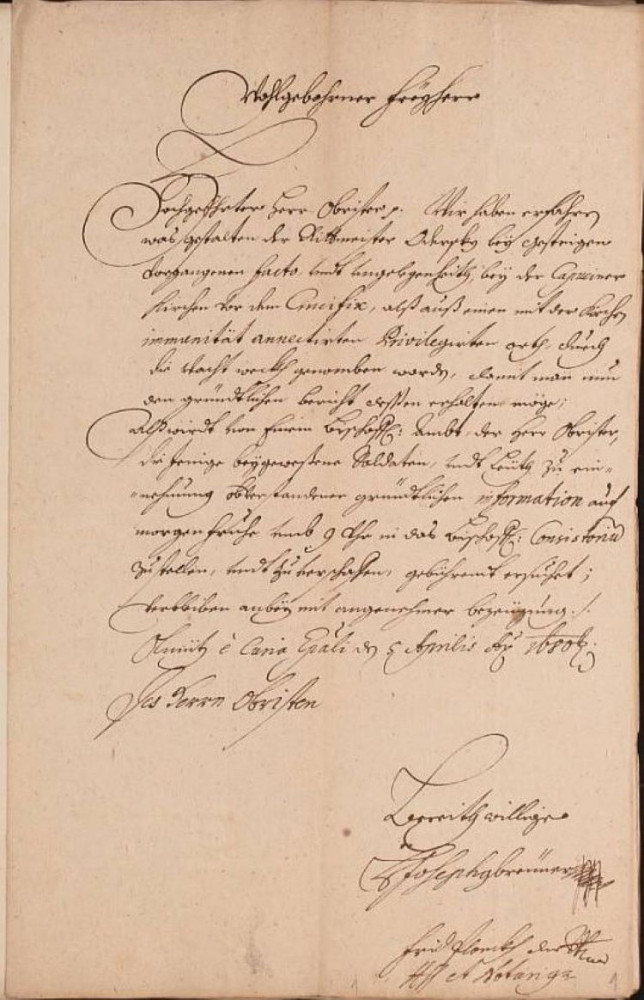 Wohlgebohrner Freyherr
Hochgeehrter Herr Obrister p. Wir haben erfahren
was gestalten der Rittmeister bey gestrigen
vorgangenen facto undt ungelegenheith, bey der Capuciner
Kirchen vor dem Crucifix, alß auß einen mit der Kirchen
immunität annectirten Privilegirten orth, durch
die Wacht weckh genomben worden, damit man nun
den gründtlichen bericht dessen erhalten möge;
Alß wirdt von Einem Bischoffl: Ambt, der Herr Obrister,
die jenige beygeweßene Soldaten, undt Leüth zu ein-
-nehmung gründtlichen information auf
morgen fruhe umb 9 Uhr in das Bischoffl: Consistorium
zustellen, undt zu verschafen, gebührendt ersuchet;
verbleiben anbey mit angenehmer bezeügung ./.
Olmütz è Curia Epali den 5 Aprilis Ao 1680
Des Herrn Obristen
Bereithwillige
Joseph